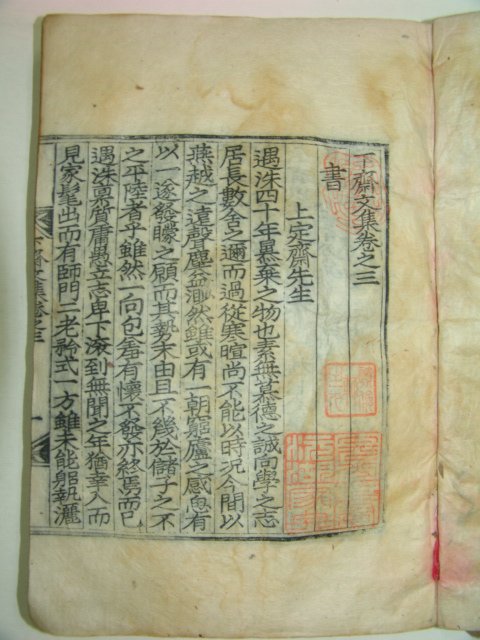 齋文集卷之三
書
上定齋先生
遇洙四十年暴棄之物也素無慕德之誠向學之志
居長數舍之邇而過從寒暄尚不能以時況今間以
燕越之遠聲塵益渺然雖或有一朝窮廬之感急有
以一逐發矇之願而其勢末由且不幾於儲子之不
之平陸者乎雖然一向包有懷不發亦終焉而已
遇洙稟質庸愚立志卑下滾到無聞之年猶幸入而
見家髦出而有師門二老矜式一方雖未能執灑
齋文集卷之三 一